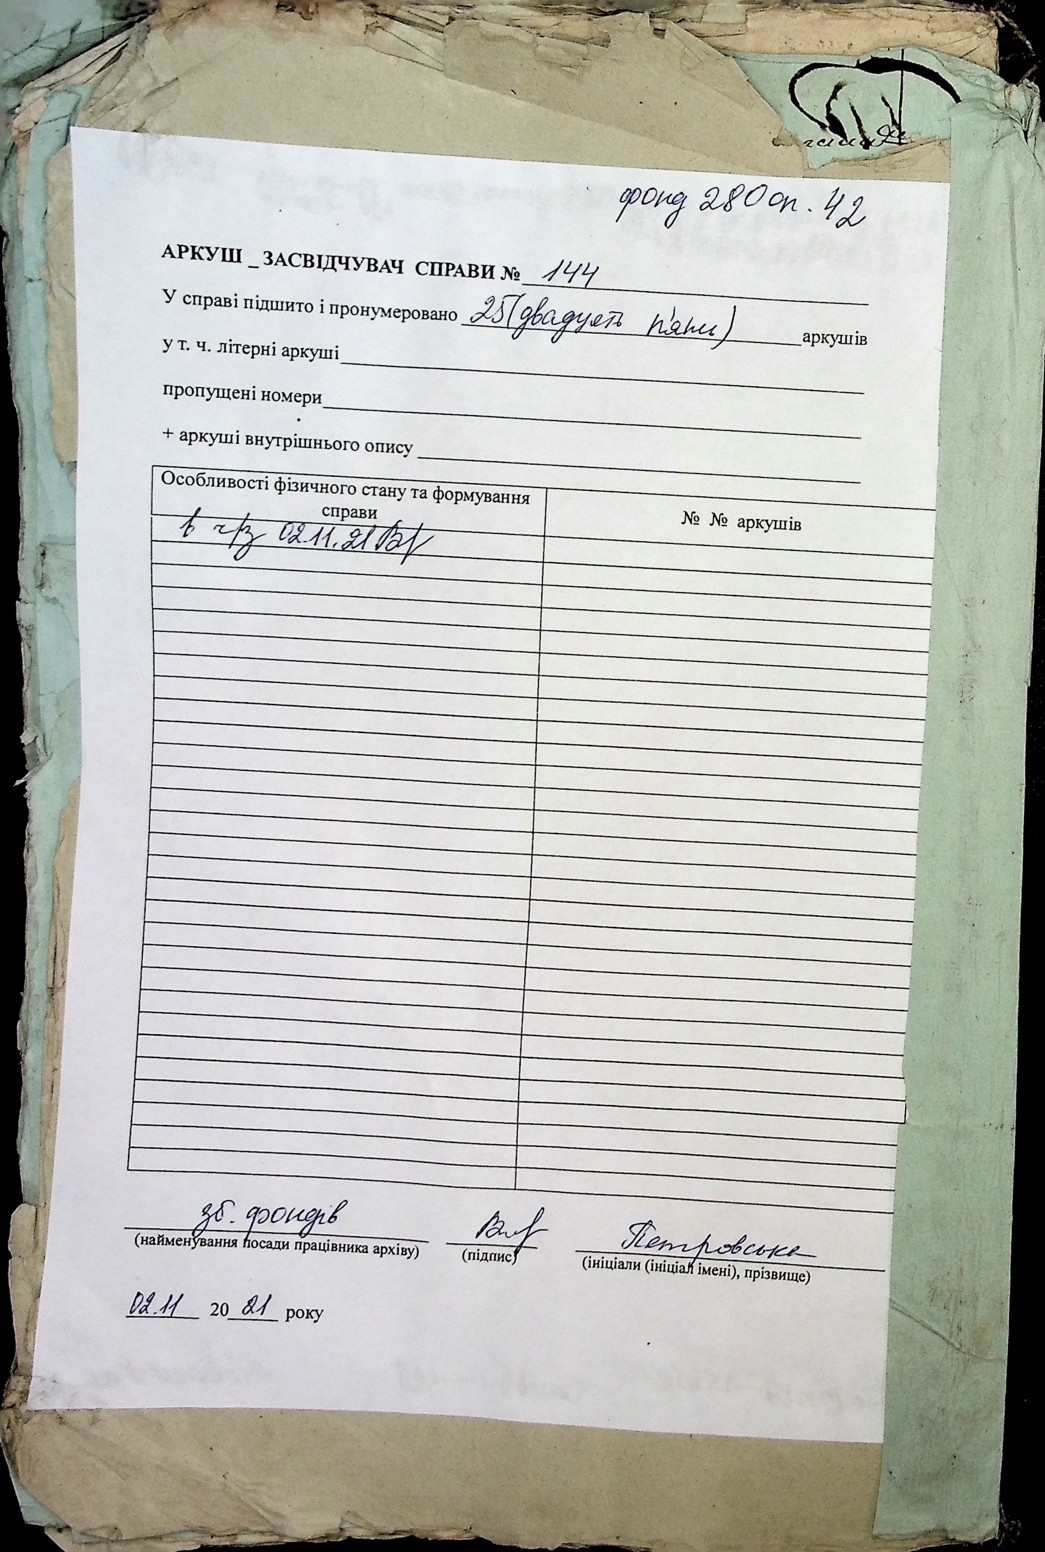 фонд 280 оп. 42
АРКУШ _ ЗАСВІДЧУВАЧ СПРАВИ № 144
У справі підшито і пронумеровано 25 (двадцять п'яти) аркушів
у т. ч. літерні аркуші
пропущені номери
+ аркуші внутрішнього опису
Особливості фізичного стану та формування
справи
№ № аркушів
в ч/з 02.11.21
зб. фондів
Петровська
(найменування посади працівника архіву)
(підпис)
(ініціали (ініціал імені), прізвище)
02.11 2021 року